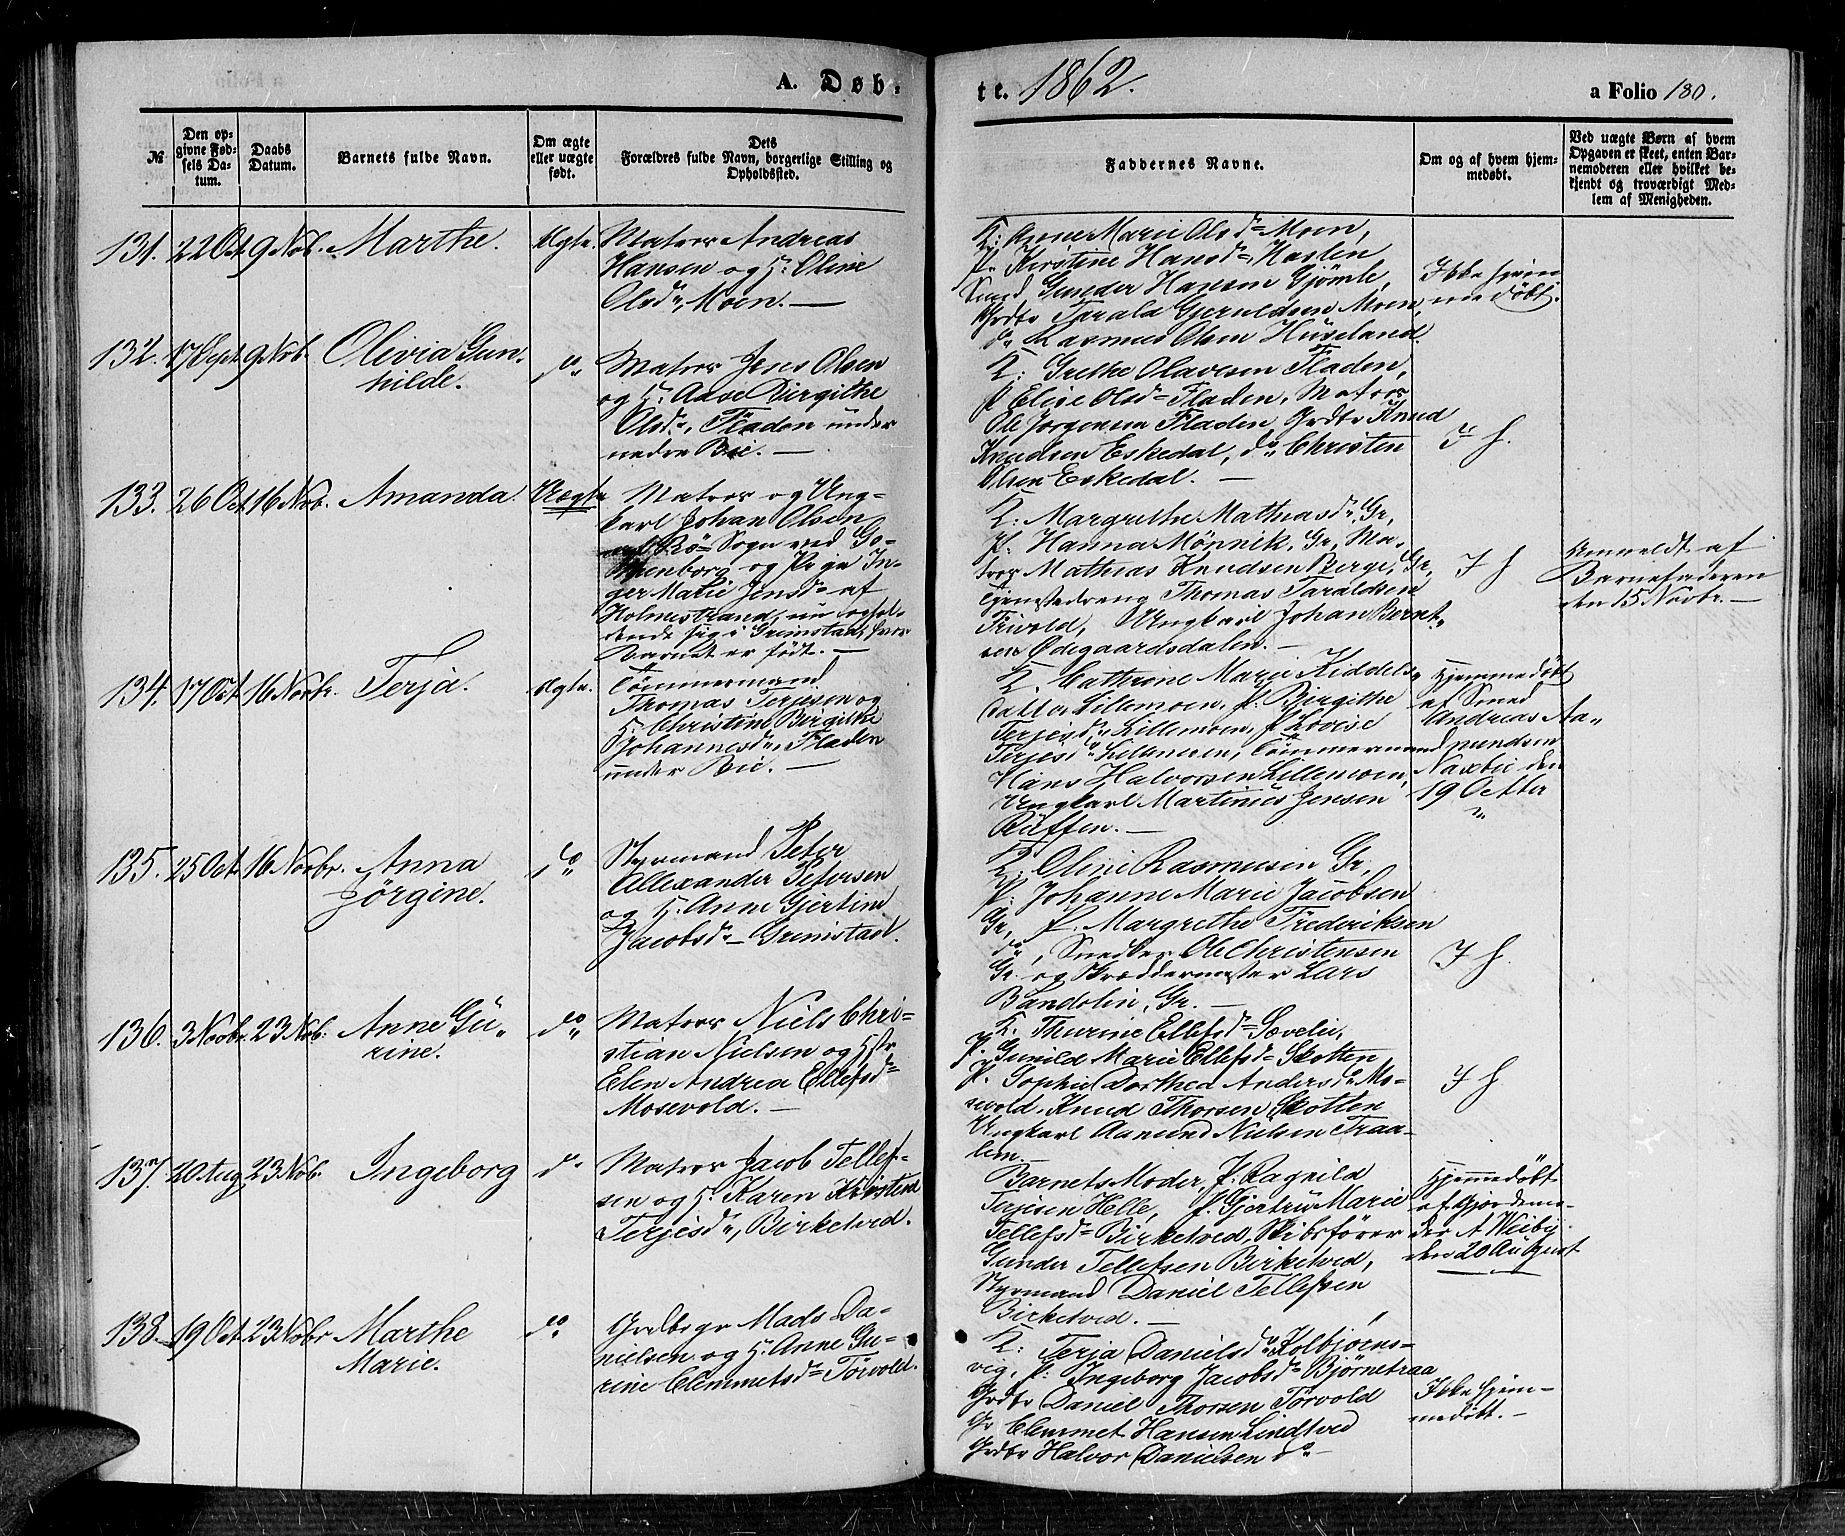 A. Døb-
te. 1862.
a Folio 180.
№
Den op-
givne Fød-
sels Da-
tum.
Daabs
Datum.
Barnets fulde Navn.
Om ægte
eller uægte
født.
Dets
Forældres fulde Navn, borgerlige Stilling og
Opholdssted.
Faddernes Navne.
Om og af hvem hjem-
medøbt.
Ved uægte Børn af hvem
Opgaven er skeet, enten Bar-
nemoderen eller hvilket be-
kjendt og troværdigt Med-
lem af Menigheden.
131. 22 Oct 9 Nob. Marthe. Ægte.
Matros Andreas
Hansen og H. Oline
Olsd. Moen. —
K: Anne Marie Olsd. Moen,
P. Kirstine Hansd. Haslen
Smed Gunder Hansen Gjømle,
Grdbr Tarald Gjeruldsen Moen,
do Rasmus Olsen Huseland.
Ikke hjem
medøbt.
132. 17 Sept. 9 Nob. Olivia Gun-
hilde. do
Matros Jens Olsen
og H. Anne Birgithe
Olsd., Fladen under
nedre Bie. —
K: Grethe Olavesen Fladen,
P. Elise Olsd. Fladen, Matros
Ole Jørgensen Fladen, Grdbr Knud
Knudsen Eskedal, do Christen
Olsen Eskedal. —
I h.
133. 26 Oct 16 Nob. Amanda. Uægte
Matros og Ung-
karl Johan Olsen
Rö Sogn ved Go-
thenborg og Pige In-
ger Marie Jensd. af
Holmestrand, nu ophol-
dende sig i Grimstad, hvor
Barnet er født. —
K: Margrethe Mathiasd., Gr,
P. Hanna Mönnik, Gr, Ma-
tros Mathias Knudsen Berge, Gr,
Tjenestedreng Thomas Taraldsen
Trivold, Ungkarl Johan Bernt-
sen Ødegaardsdalen. —
I h
Anmeldt af
Barnefaderen
den 15 Novbr. —
134. 17 Oct 16 Novbr. Terja. Ægte.
Tømmermand
Thomas Terjesen og
H. Christine Birgithe
Johannesd. Fladen
under Bie. —
K. Cathrine Marie Kiddels-
datter Lillemoen, P. Birgithe
Terjesd., Lillemoen, P. Lovise
Terjesd. Lillemoen, Tømmermand
Hans Halvorsen Lillemoen,
Ungkarl Martinius Jensen
Rüffen. —
Hjemmedøbt
af Smed
Andreas Aa-
nundsen
Naxbie den
19 Octbr
135. 25 Oct. 16 Novbr. Anna
Jørgine. do
Styrmand Peter
Allexander Petersen
og H. Anne Gjertine
Jacobsd. Grimstad.
K: Oline Rasmussen Gr,
P. Johanne Marie Jacobsen
Gr, P. Margrethe Frederiksen
do, Snedker Ole Christensen
Gr. og Skræddermester Lars
Bandolin, Gr. —
I h
136. 3 Novbr. 23 Nob: Anne Gu-
rine. do
Matros Niels Chri-
stian Nielsen og Hstr
Elen Andrea Ellefsd.
Mosevold. —
K. Thurine Ellefsd.
P. Gunild Marie Ellefsd. Skotten
P. Sophie Dorthea Andersd. Mo-
sevold, Knud Thorsen Skotten
Ungkarl Aanund Nielsen Traa-
lem. —
I h
137. 20 Aug 23 Nob. Ingeborg do
Matros Jacob Tellef-
sen og H. Karen Kirstine
Terjesd., Birketved.
Barnets Moder, P. Ragnild
Terjesen Helle, P. Gjertru Marie
Tellefsd. Birketved, Skibsfører
Gunder Tellefsen Birketved,
Styrmand Daniel Tellefsen
Birketved. —
Hjemmedøbt
af Gjordemo-
der A Weiby
den 20 August
138. 19 Oct. 23 Nobr Marthe
Marie. do
Grdbrgr Mads Da-
nielsen og H. Anne Gu-
rine Clemmetsd. Törvold.
K: Terja Danielsd. Kolbjørns-
vig, P. Ingeborg Jacobsd. Bjørnetraa
Grdbr Daniel Thorsen Törvold
Gr Clemmet Hansen Lindtved
Grdbr Halvor Danielsen do
Ikke hjem-
medøbt. —